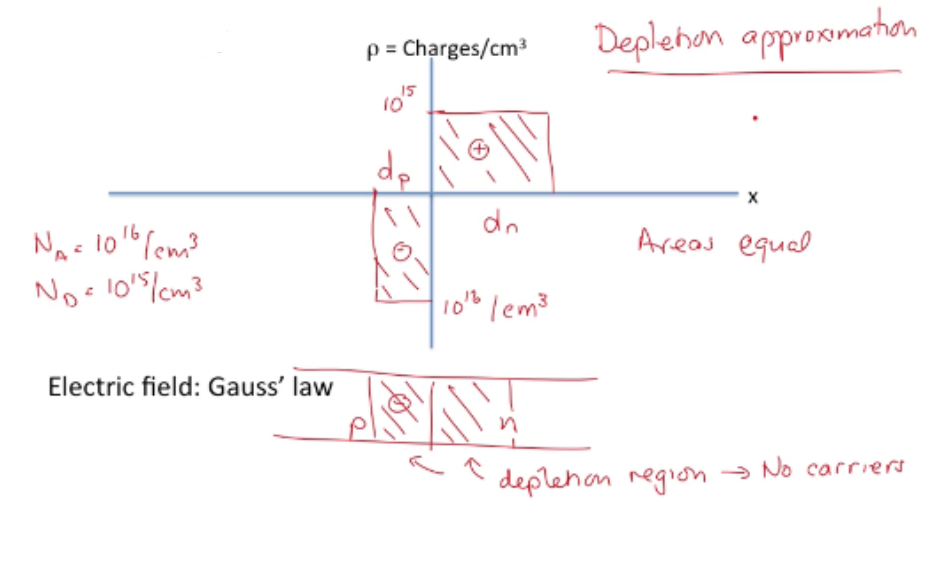 ρ = Charges/cm³
Depletion approximation
10¹⁵
⊕
dₚ
x
dₙ
N_A = 10¹⁶/cm³
Areas equal
⊖
N_D = 10¹⁵/cm³
10¹⁶/cm³
Electric field: Gauss’ law
p
n
depletion region → No carriers